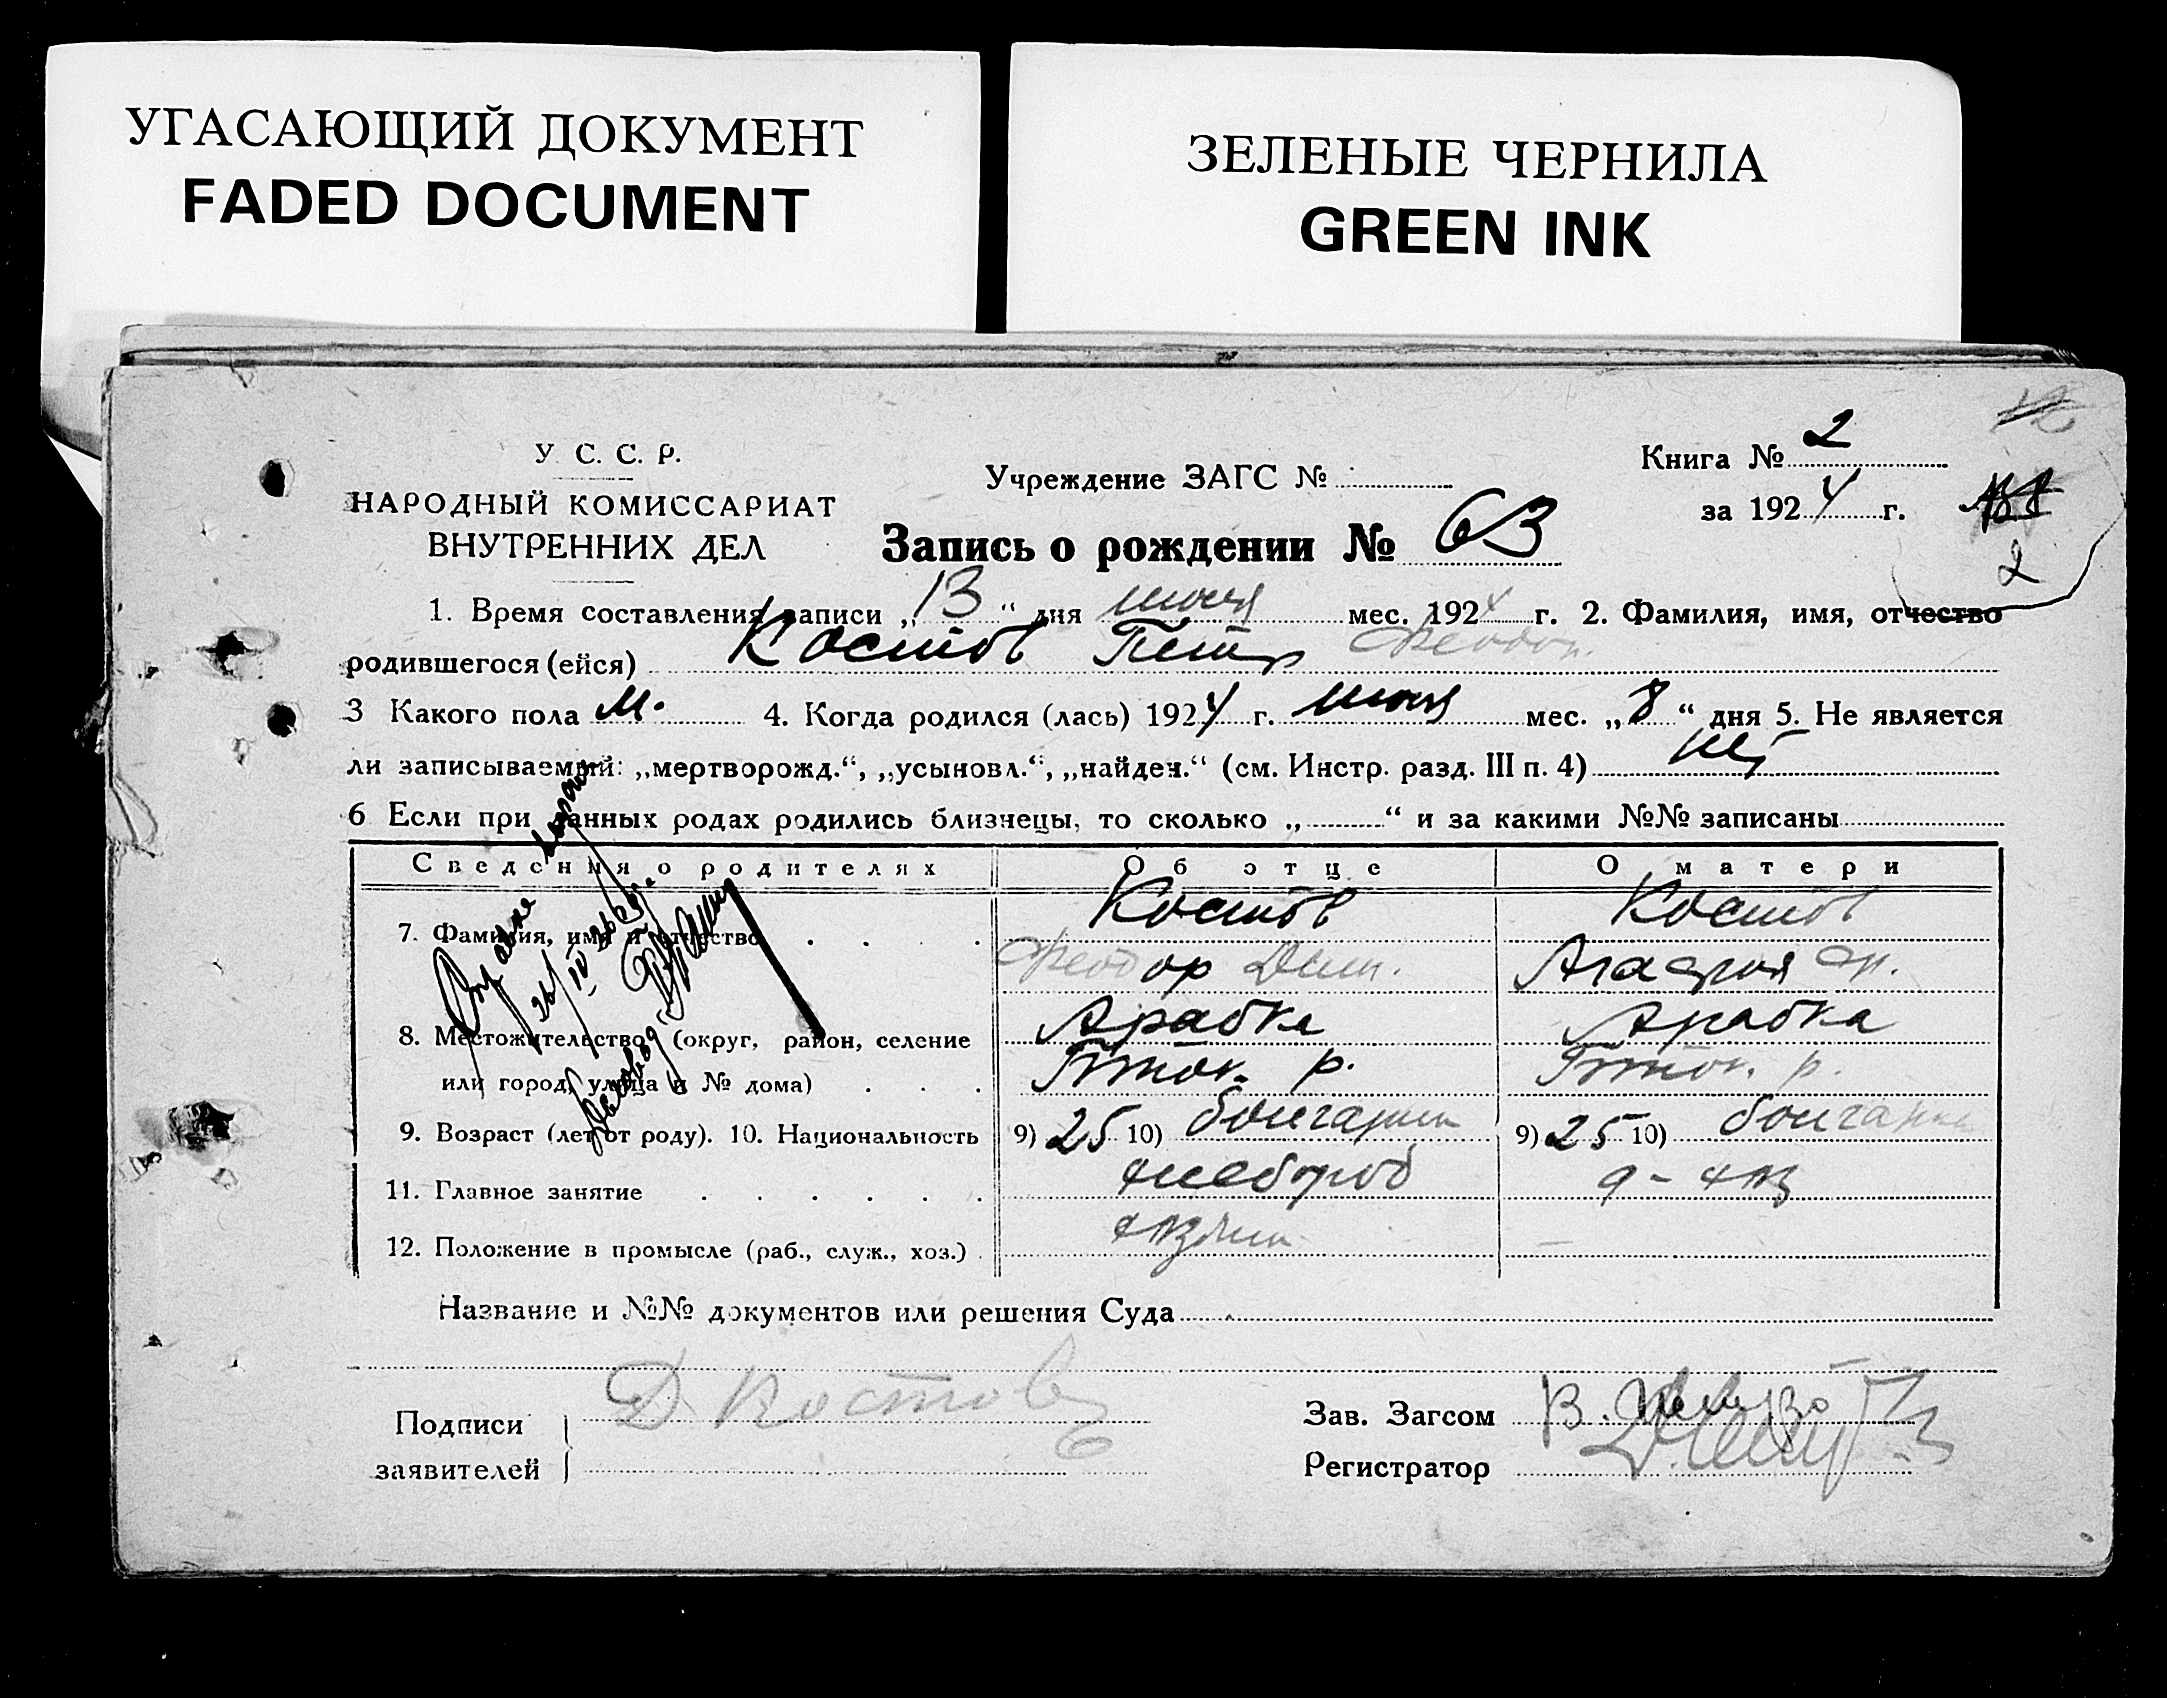 УГАСАЮЩИЙ ДОКУМЕНТ
FADED DOCUMENT
ЗЕЛЕНЫЕ ЧЕРНИЛА
GREEN INK
У. С. С. Р.
НАРОДНЫЙ КОМИССАРИАТ
ВНУТРЕННИХ ДЕЛ
Учреждение ЗАГС №
Книга № 2
за 1924 г.
2
Запись о рождении № 63
1. Время составления записи „13“ дня июня мес. 1924 г. 2. Фамилия, имя, отчество
родившегося (ейся) Костов Петр Феодор.
3 Какого пола м. 4. Когда родился (лась) 1924 г. июня мес. „8“ дня 5. Не является
ли записываемый: „мертворожд.“, „усыновл.“, „найден.“ (см. Инстр. разд. III п. 4) нет
6 Если при данных родах родились близнецы, то сколько „ “ и за какими №№ записаны
Сведения о родителях Об отце О матери
7. Фамилия, имя и отчество Костов Костов
Феодор Дим. Агафия
8. Местожительство (округ, район, селение Арабка Арабка
или город, улица и № дома) р. р.
9. Возраст (лет от роду). 10. Национальность 9) 25 10) болгарин 9) 25 10) болгарка
11. Главное занятие хлебороб
12. Положение в промысле (раб., служ., хоз.)
Название и №№ документов или решения Суда
Подписи Д Костов
заявителей
Зав. Загсом В.
Регистратор